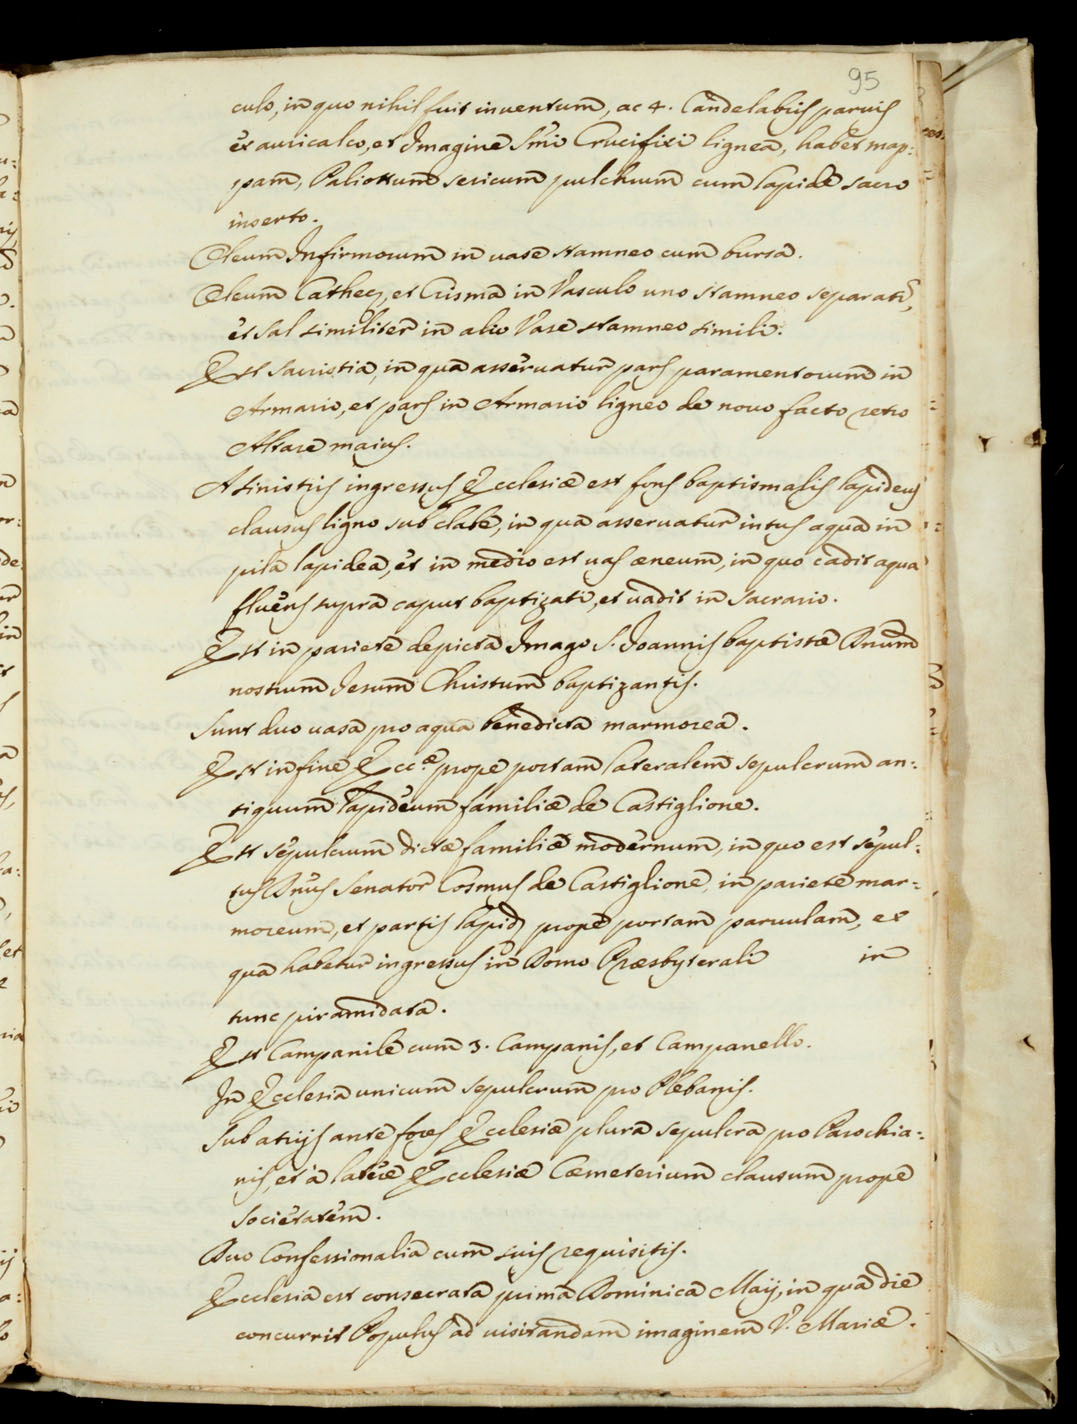 95
culo, in quo nihil fuit inventum, ac 4. Candelabris parvis
ex auricalco, et Imagine S.mi Crucifixi lignea, habet map:
pam, Paliottum sericum pulchrum cum lapide sacro
inserto.
Oleum Infirmorum in vase stamneo cum bursa.
Oleum Cathec., et Crisma in Vasculo uno stamneo separati,
et Sal similiter in alio Vase stamneo simili.
Est Sacristia, in qua asseruatur pars paramentorum in
Armario, et pars in Armario ligneo de nouo facto retro
Altare maius.
A sinistris ingressus Ecclesiæ est fons baptismalis lapideus
clausus ligno sub clave, in qua asseruatur intus aqua in
pila lapidea, et in medio est uas æneum, in quo cadit aqua
fluens supra caput baptizati, et uadit in Sacrario.
Est in pariete depicta Imago S. Joannis baptistæ Dnum
nostrum Jesum Christum baptizantis.
Sunt duo uasa pro aqua benedicta marmorea.
Est in fine Ecc.æ prope portam lateralem sepulcrum an:
tiquum lapideum familiæ de Castiglione.
Est sepulcrum dictæ familiæ modernum, in quo est sepul:
tus Dnus Senator Cosmus de Castiglione, in pariete mar:
moreum, et partis lapid, prope portam paruulam, ex
qua habetur ingressus in Domo Præsbyterali in
tunc piramidata.
Est Campanile cum 3. Campanis, et Campanello.
In Ecclesia unicum sepulcrum pro Plebanis.
Sub atrijs ante fores Ecclesiæ plura sepulcra pro Parochia:
nis, et à latere Ecclesiæ Cæmeterium clausum prope
societatem.
Duo Confessionalia cum suis requisitis.
Ecclesia est consecrata prima Dominica Maij, in qua die
concurrit Populus ad uisitandam imaginem V. Mariæ.